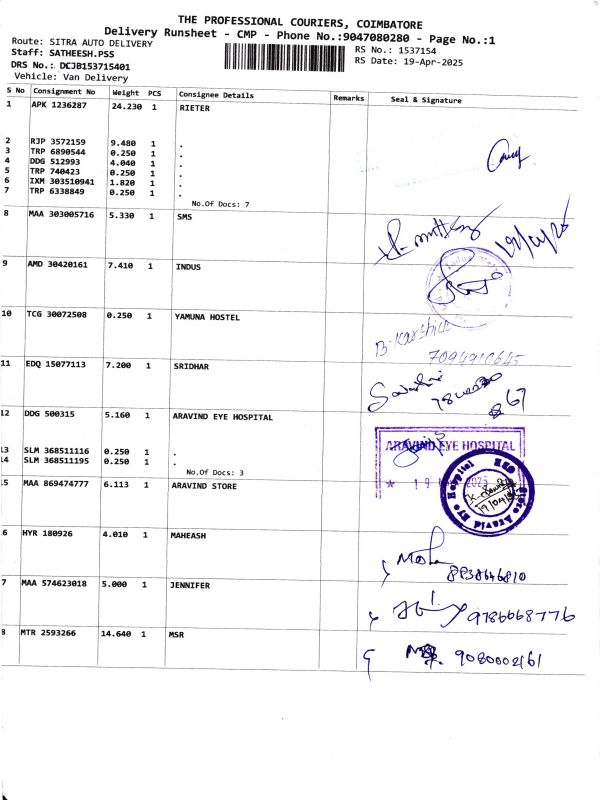 THE PROFESSIONAL COURIERS, COIMBATORE
Delivery Runsheet - CMP - Phone No.:9047080280 - Page No.:1
Route: SITRA AUTO DELIVERY
Staff: SATHEESH.PSS
DRS No.: DCJB153715401
Vehicle: Van Delivery
RS No.: 1537154
RS Date: 19-Apr-2025
S No Consignment No Weight PCS Consignee Details Remarks Seal & Signature
1 APK 1236287 24.230 1 RIETER
2 RJP 3572159 9.480 1 .
3 TRP 6890544 0.250 1 .
4 DDG 512993 4.040 1 .
5 TRP 740423 0.250 1 .
6 IXM 303510941 1.820 1 .
7 TRP 6338849 0.250 1 .
No.Of Docs: 7
8 MAA 303005716 5.330 1 SMS
9 AMD 30420161 7.410 1 INDUS
10 TCG 30072508 0.250 1 YAMUNA HOSTEL
7094910645
11 EDQ 15077113 7.200 1 SRIDHAR
67
12 DDG 500315 5.160 1 ARAVIND EYE HOSPITAL
ARAVIND EYE HOSPITAL
13 SLM 368511116 0.250 1 .
14 SLM 368511195 0.250 1 .
No.Of Docs: 3
5 MAA 869474777 6.113 1 ARAVIND STORE
6 HYR 180926 4.010 1 MAHEASH
8838646810
7 MAA 574623018 5.000 1 JENNIFER
9786068776
8 MTR 2593266 14.640 1 MSR
9080002161